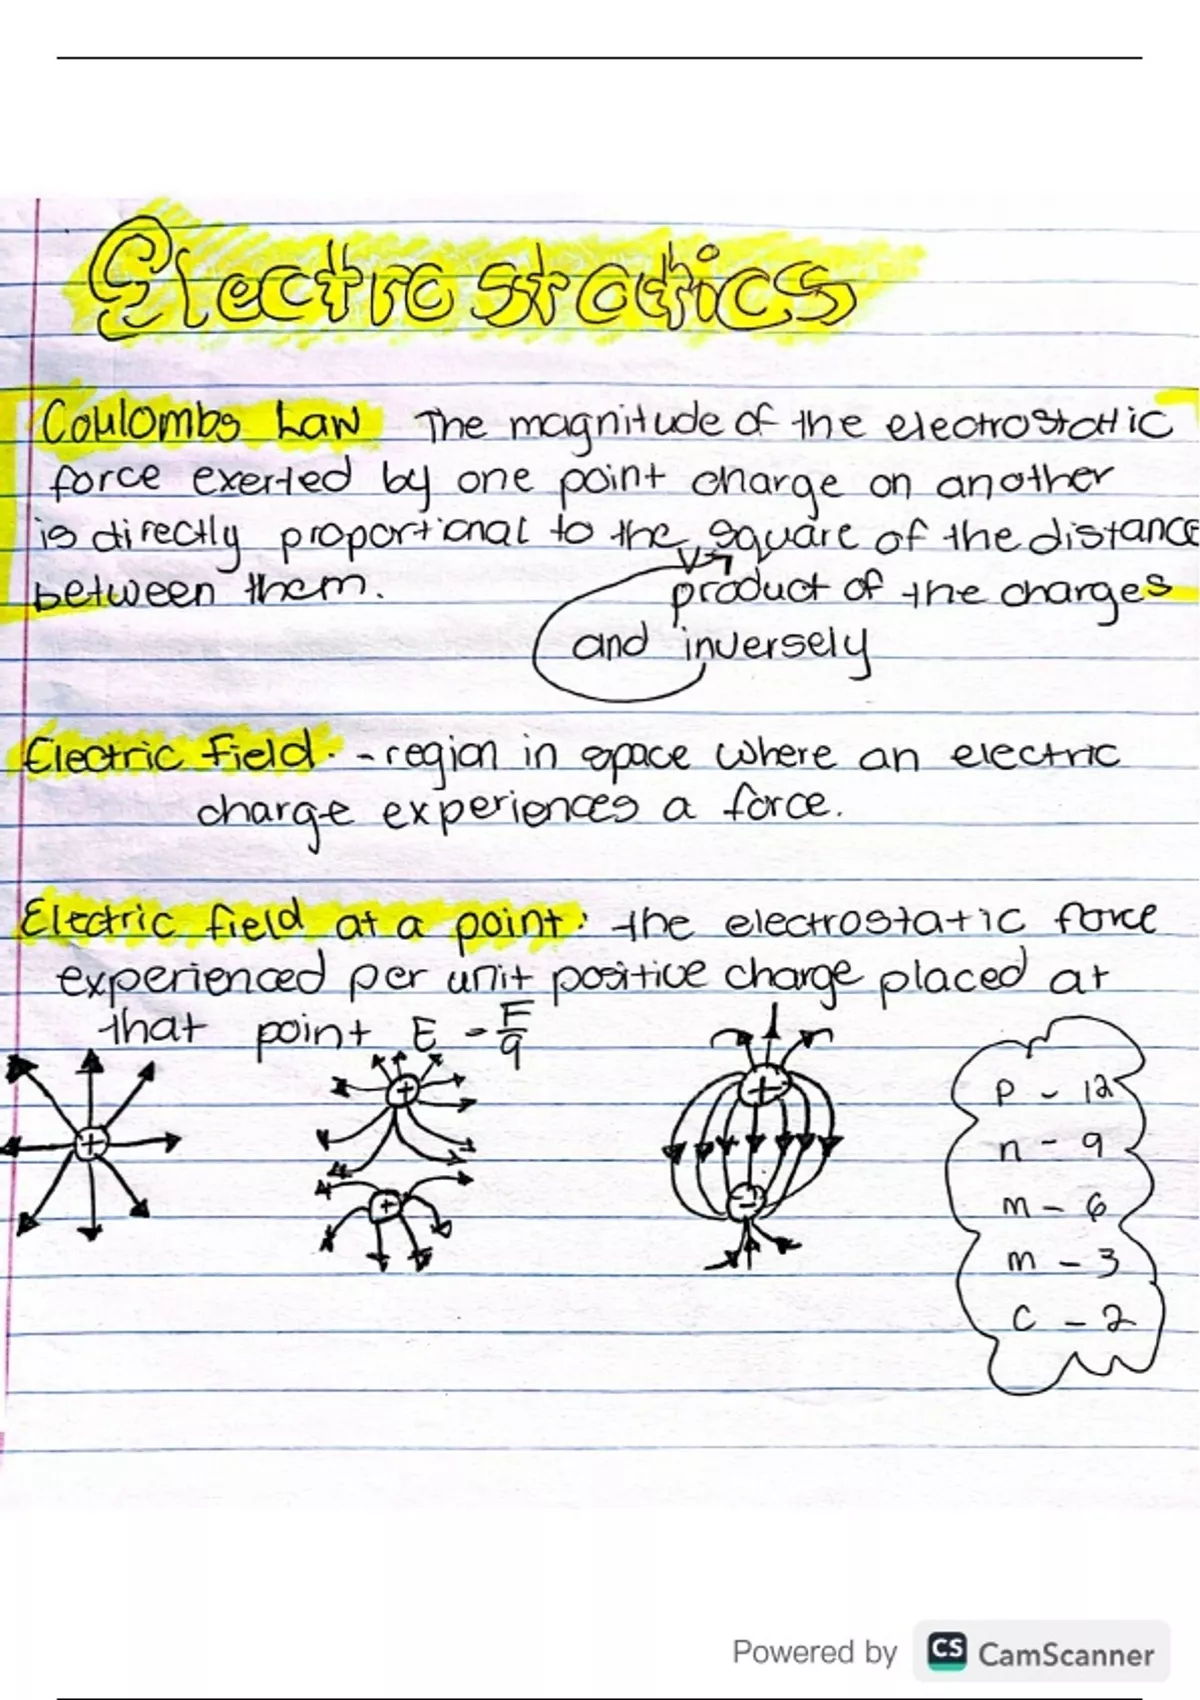 Electrostatics
Coulombs Law The magnitude of the electrostatic
force exerted by one point charge on another
is directly proportional to the square of the distance
between them. product of the charges
and inversely
Electric Field. - region in space where an electric
charge experiences a force.
Electric field at a point: the electrostatic force
experienced per unit positive charge placed at
that point E = F/q
+
+
+
+
-
p - 12
n - 9
m - 6
m - 3
c - 2
Powered by CS CamScanner